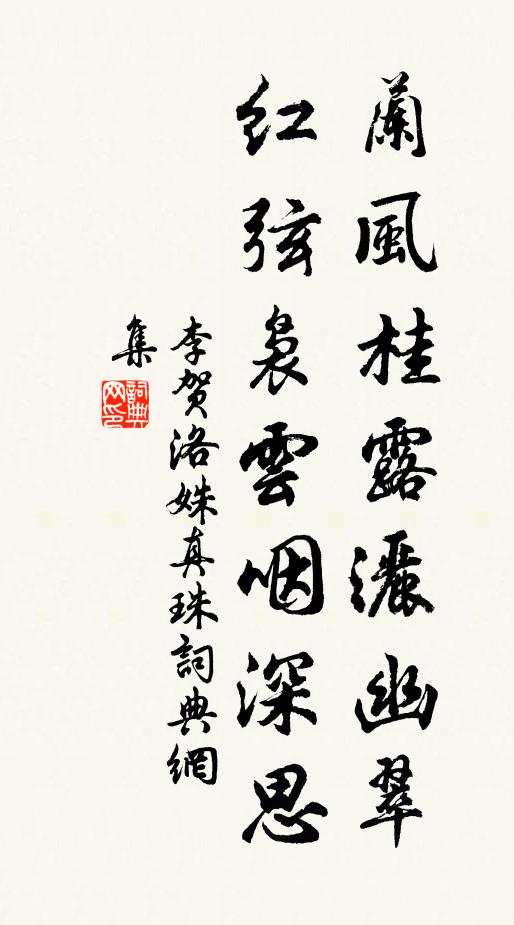 蘭風桂露灑幽翠
紅弦裊雲咽深思
李賀洛姝真珠詞典網
集
詞典网印